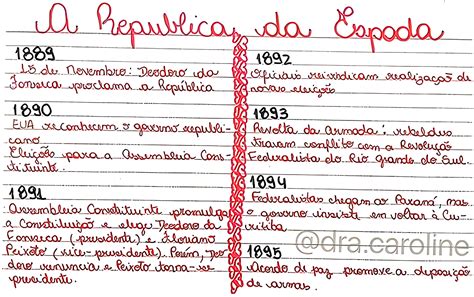 A Republica da Espada
1889
15 de Novembro: Deodoro da
Fonseca proclama a República
1890
EUA reconhecem o governo republi-
cano.
Eleições para a Assembleia Cons-
tituinte.
1891
Assembleia Constituinte promulga
a Constituição e elege Deodoro da
Fonseca (presidente) e Floriano
Peixoto (vice-presidente). Porém, Deo-
doro renuncia e Peixoto torna-se
presidente.
1892
Oficiais reivindicam realização de
novas eleições
1893
Revolta da Armada: rebeldes
travam conflito com a Revolução
Federalista do Rio Grande do Sul.
1894
Federalistas chegam ao Paraná, mas
o governo insiste em voltar à Cu-
ritiba
1895
Acordo de paz promove a deposição
de armas.
@dra.caroline